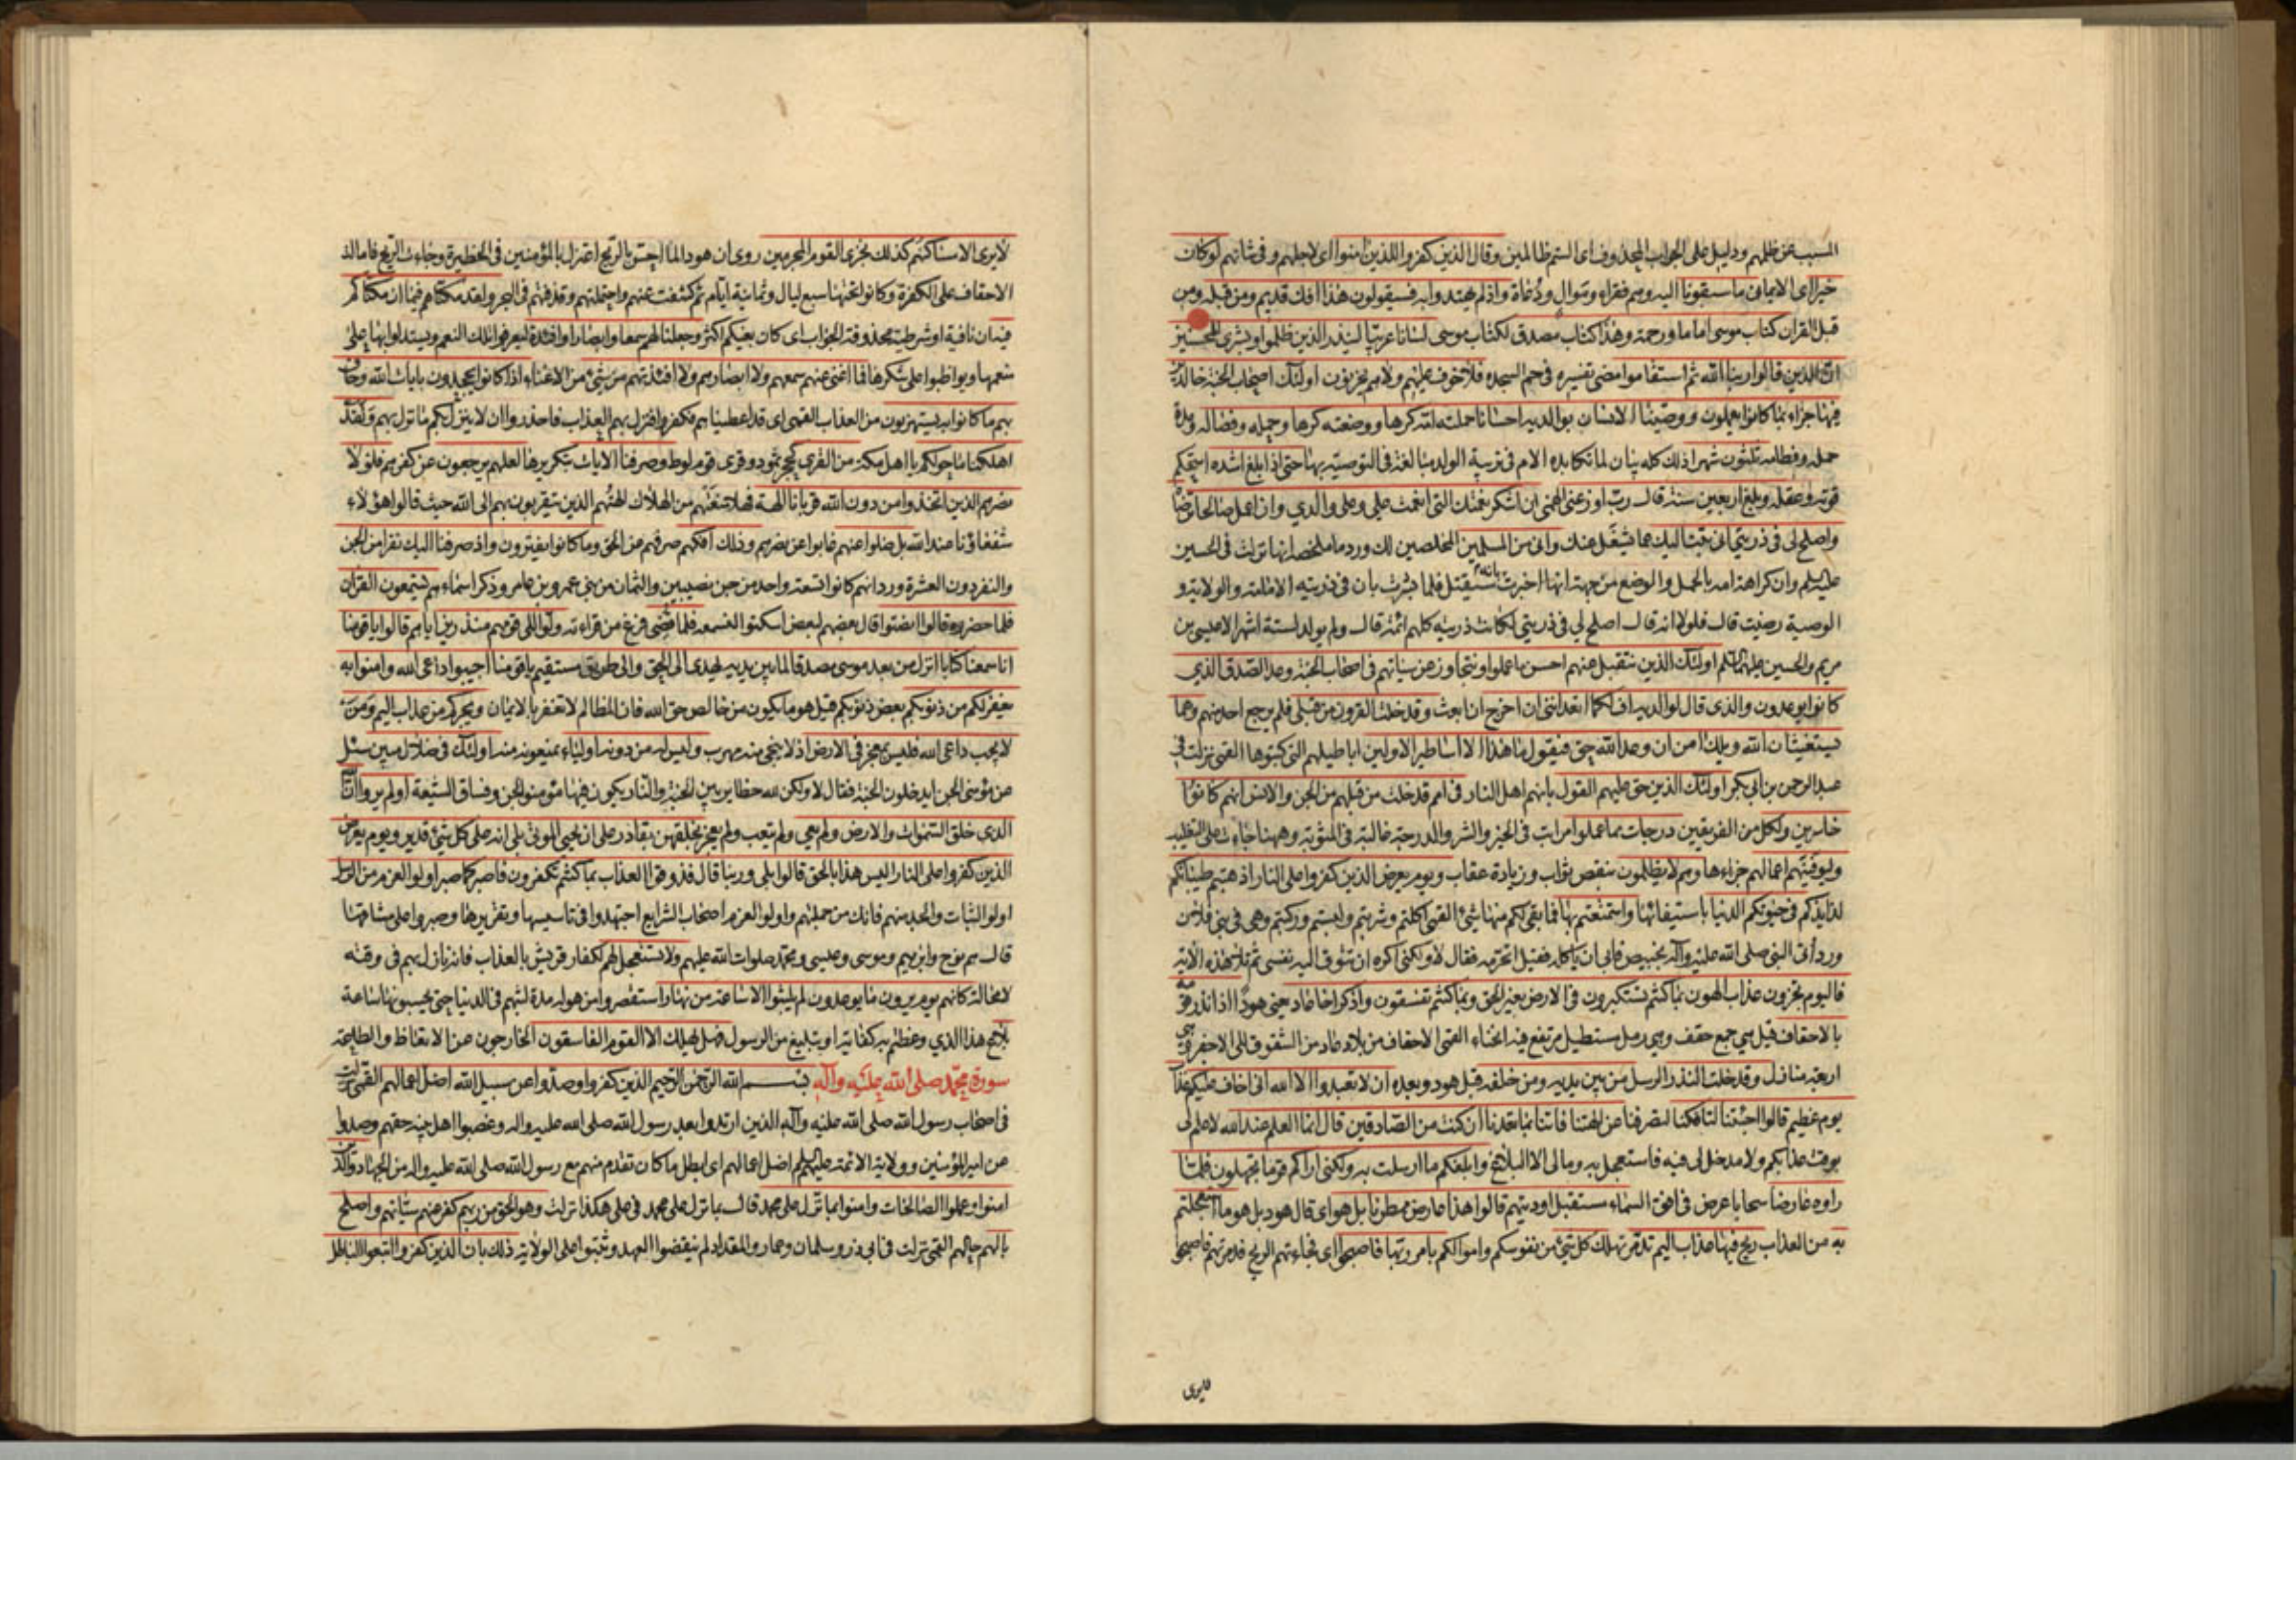 المسبب عن ظلمهم ودليل على الجواب المحذوف اى الستم ظالمين وقال الذين كفروا للذين امنوا اى لاجلهم وفى شانهم لوكان
خيرا اى الايمان ما سبقونا اليه وهم فقراء وموال ورعاة واذ لم يهتدوا به فسيقولون هذا افك قديم ومن قبله ومن
قبل القران كتاب موسى اماما ورحمة وهذا كتاب مصدق لكتاب موسى لسانا عربيا لينذر الذين ظلموا وبشرى للمحسنين
ان الذين قالوا ربنا الله ثم استقاموا مضى تفسيره فى حم السجده فلا خوف عليهم ولا هم يحزنون اولئك اصحاب الجنة خالدين
فيها جزاء بما كانوا يعملون ووصينا الانسان بوالديه احسانا حملته امه كرها ووضعته كرها وحمله وفصاله ومدة
حمله وفطامه ثلثون شهرا ذلك كله بيان لما تكابده الام فى تربية الولد مبالغة فى التوصية بها حتى اذا بلغ اشده استحكم
قوته وعقله وبلغ اربعين سنة قال رب اوزعنى الهمنى ان اشكر نعمتك التى انعمت على وعلى والدي وان اعمل صالحا ترضاه
واصلح لى فى ذريتى انى تبت اليك عما شغل عنك وانى من المسلمين المخلصين لك ورد ما ملخصه انها نزلت فى الحسين
عليه السلم وان كراهة امه بالحمل والوضع من جهة انها اخبرت بانه سيقتل فلما بشرت بان فى ذريته الامامة والولاية و
الوصية رضيت قال فلولا انه قال اصلح لي فى ذريتى لكانت ذريته كلهم ائمة قال ولم يولد لستة اشهر الا عيسى بن
مريم والحسين عليهما السلم اولئك الذين نتقبل عنهم احسن ما عملوا ونتجاوز عن سيئاتهم فى اصحاب الجنة وعد الصدق الذي
كانوا يوعدون والذى قال لوالديه اف لكما اتعداننى ان اخرج ان ابعث وقد خلت القرون من قبلى فلم يرجع احد منهم وهما
يستغيثان الله ويلك امن ان وعد الله حق فيقول ما هذا الا اساطير الاولين اباطيلهم التى كتبوها القمى نزلت فى
عبد الرحمن بن ابى بكر اولئك الذين حق عليهم القول بانهم اهل النار فى امم قد خلت من قبلهم من الجن والانس انهم كانوا
خاسرين ولكل من الفريقين درجات مما عملوا مراتب فى الخير والشر والدرجة غالبة فى المثوبة وههنا جاءت على التغليب
وليوفينهم اعمالهم جزاءها وهم لا يظلمون بنقص ثواب وزيادة عقاب ويوم يعرض الذين كفروا على النار اذهبتم طيباتكم
لذايذكم فى حيوتكم الدنيا باستيفائها واستمتعتم بها فما بقى لكم منها شئ القمى اكلتم وشربتم ولبستم وركبتم وهى فى بنى فلان
ورد اتى النبى صلى الله عليه وآله بخبيص فابى ان ياكله فقيل اتحرمه فقال لا ولكنى اكره ان تتوق اليه نفسى ثم تلا هذه الاية
فاليوم تجزون عذاب الهون بما كنتم تستكبرون فى الارض بغير الحق وبما كنتم تفسقون واذكر اخا عاد يعنى هودا اذ انذر قومه
بالاحقاف قيل هي جمع حقف وهى رمل مستطيل مرتفع فيه انحناء القمى الاحقاف من بلاد عاد من الشقوق الى الاجفر وهى
اربعة منازل وقد خلت النذر الرسل من بين يديه ومن خلفه قبل هود وبعده ان لا تعبدوا الا الله انى اخاف عليكم عذاب
يوم عظيم قالوا اجئتنا لتافكنا لتصرفنا عن الهتنا فاتنا بما تعدنا ان كنت من الصادقين قال انما العلم عند الله لا علم لى
بوقت عذابكم ولا مدخل لى فيه فاستعجل به وما لى الا البلاغ وابلغكم ما ارسلت به ولكنى اراكم قوما تجهلون فلما
راوه عارضا سحابا عرض فى افق السماء مستقبل اوديتهم قالوا هذا عارض ممطرنا بل هو اى قال هود بل هو ما استعجلتم
به من العذاب ريح فيها عذاب اليم تدمر تهلك كل شئ من نفوسكم واموالكم بامر ربها فاصبحوا اى فجاءتهم الريح فدمرتهم فاصبحوا
لايرى
لا يرى الا مساكنهم كذلك نجزى القوم المجرمين روى ان هودا لما احس بالريح اعتزل بالمؤمنين فى الحظيرة وجاءت الريح فامالت
الاحقاف على الكفرة وكانوا تحتها سبع ليال وثمانية ايام ثم كشفت عنهم واحتملتهم وقذفتهم فى البحر ولقد مكناهم فيما ان مكناكم
فيه ان نافية او شرطية محذوفة الجواب اى كان بغيكم اكثر وجعلنا لهم سمعا وابصارا وافئدة ليعرفوا تلك النعم ويستدلوا بها على
منعمها ويواظبوا على شكرها فما اغنى عنهم سمعهم ولا ابصارهم ولا افئدتهم من شئ من الاغناء اذ كانوا يجحدون بايات الله وحاق
بهم ما كانوا به يستهزئون من العذاب القمى اى قد اعطيناهم فكفروا فنزل بهم العذاب فاحذروا ان لا ينزل بكم ما نزل بهم ولقد
اهلكنا ما حولكم يا اهل مكة من القرى كحجر ثمود وقرى قوم لوط وصرفنا الايات بتكريرها لعلهم يرجعون عن كفرهم فلولا
نصرهم الذين اتخذوا من دون الله قربانا الهة فهلا منعتهم من الهلاك الهتهم الذين يتقربون بهم الى الله حيث قالوا هؤلاء
شفعاؤنا عند الله بل ضلوا عنهم غابوا عن نصرهم وذلك افكهم صرفهم عن الحق وما كانوا يفترون واذ صرفنا اليك نفرا من الجن
والنفر دون العشرة ورد انهم كانوا تسعة واحد من جن نصيبين والثمان من بنى عمرو بن عامر وذكر اسماءهم يستمعون القران
فلما حضروه قالوا انصتوا قال بعضهم لبعض اسكتوا لنسمعه فلما قضى فرغ من قراءته ولوا الى قومهم منذرين اياهم قالوا يا قومنا
انا سمعنا كتابا انزل من بعد موسى مصدقا لما بين يديه يهدى الى الحق والى طريق مستقيم يا قومنا اجيبوا داعى الله وامنوا به
يغفر لكم من ذنوبكم بعض ذنوبكم قيل هو ما يكون من خالص حق الله فان المظالم لا تغفر بالايمان ويجركم من عذاب اليم ومن
لا يجب داعى الله فليس بمعجز فى الارض اذ لا ينجى منه مهرب وليس له من دونه اولياء يمنعونه منه اولئك فى ضلال مبين سئل
عن مؤمنى الجن ايدخلون الجنة فقال لا ولكن لله حظاير بين الجنة والنار يكون فيها مؤمنو الجن وفساق الشيعة اولم يروا ان الله
الذى خلق السموات والارض ولم يعى ولم يتعب ولم يعجز بخلقهن بقادر على ان يحيى الموتى بلى انه على كل شئ قدير ويوم يعرض
الذين كفروا على النار اليس هذا بالحق قالوا بلى وربنا قال فذوقوا العذاب بما كنتم تكفرون فاصبر كما صبر اولوا العزم من الرسل
اولوا الثبات والجد منهم فانك من جملتهم واولوا العزم اصحاب الشرايع اجتهدوا فى تاسيسها وتقريرها وصبروا على مشاقها
قال هم نوح وابرهيم وموسى وعيسى ومحمد صلوات الله عليهم ولا تستعجل لهم لكفار قريش بالعذاب فانه نازل بهم فى وقته
لا محالة كانهم يوم يرون ما يوعدون لم يلبثوا الا ساعة من نهار استقصروا من هوله مدة لبثهم فى الدنيا حتى يحسبونها ساعة
بلاغ هذا الذي وعظتم به كفاية او تبليغ من الرسول فهل يهلك الا القوم الفاسقون الخارجون عن الاتعاظ والطاعة
سورة محمد صلى الله عليه وآله بسم الله الرحمن الرحيم الذين كفروا وصدوا عن سبيل الله اضل اعمالهم القمى نزلت
فى اصحاب رسول الله صلى الله عليه وآله الذين ارتدوا بعد رسول الله صلى الله عليه واله وغصبوا اهل بيته حقهم وصدوا
عن امير المؤمنين وولاية الائمة عليهم السلم اضل اعمالهم اى ابطل ما كان تقدم منهم مع رسول الله صلى الله عليه واله من الجهاد والذين
امنوا وعملوا الصالحات وامنوا بما نزل على محمد قال بما نزل على محمد فى على هكذا نزلت وهو الحق من ربهم كفر عنهم سيئاتهم واصلح
بالهم حالهم القمى نزلت فى ابى ذر وسلمان وعمار والمقداد لم ينقضوا العهد وثبتوا على الولاية ذلك بان الذين كفروا اتبعوا الباطل